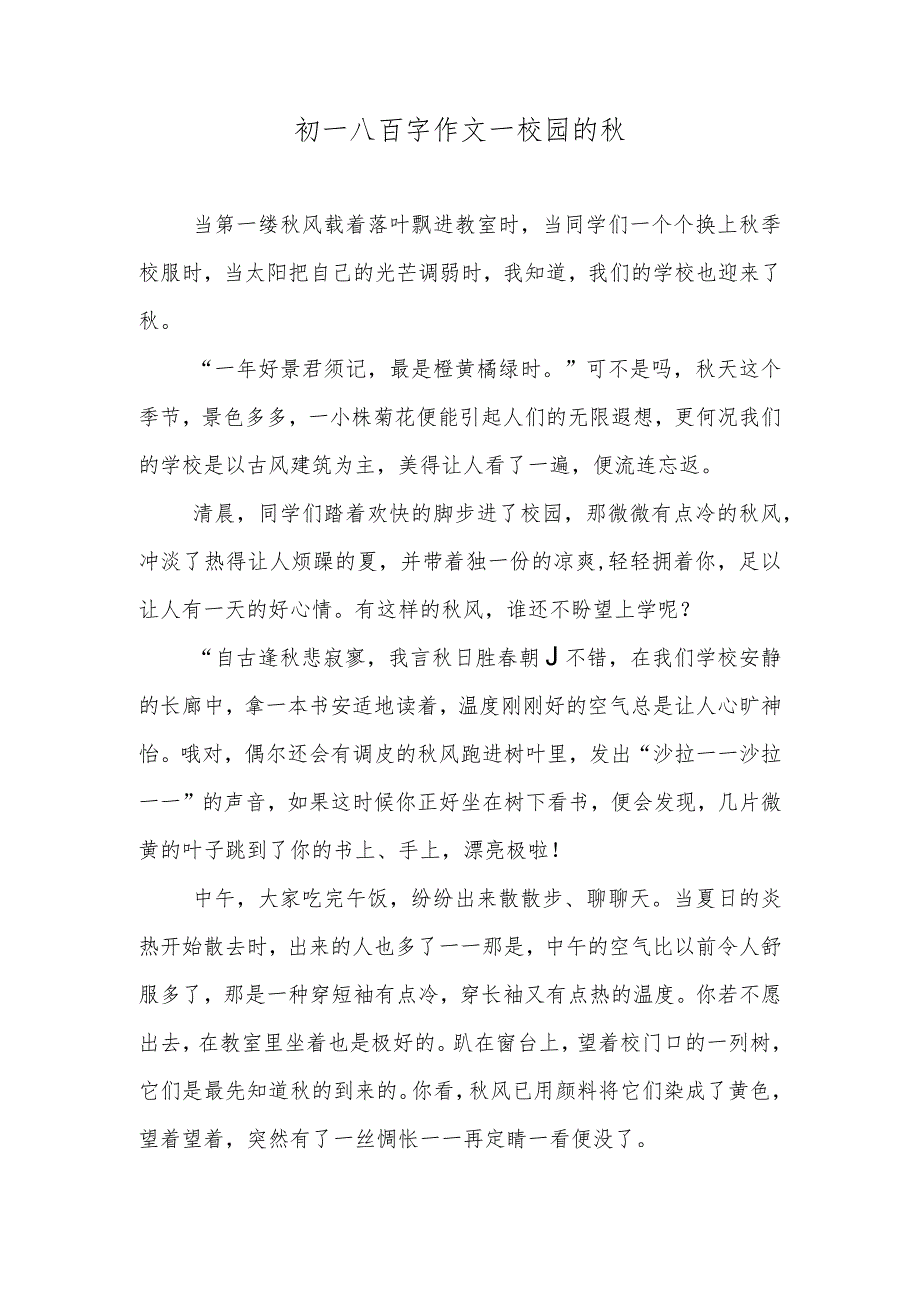 初一八百字作文一校园的秋
当第一缕秋风载着落叶飘进教室时，当同学们一个个换上秋季
校服时，当太阳把自己的光芒调弱时，我知道，我们的学校也迎来了
秋。
“一年好景君须记，最是橙黄橘绿时。”可不是吗，秋天这个
季节，景色多多，一小株菊花便能引起人们的无限遐想，更何况我们
的学校是以古风建筑为主，美得让人看了一遍，便流连忘返。
清晨，同学们踏着欢快的脚步进了校园，那微微有点冷的秋风，
冲淡了热得让人烦躁的夏，并带着独一份的凉爽,轻轻拥着你，足以
让人有一天的好心情。有这样的秋风，谁还不盼望上学呢？
“自古逢秋悲寂寥，我言秋日胜春朝J不错，在我们学校安静
的长廊中，拿一本书安适地读着，温度刚刚好的空气总是让人心旷神
怡。哦对，偶尔还会有调皮的秋风跑进树叶里，发出“沙拉一一沙拉
一一”的声音，如果这时候你正好坐在树下看书，便会发现，几片微
黄的叶子跳到了你的书上、手上，漂亮极啦！
中午，大家吃完午饭，纷纷出来散散步、聊聊天。当夏日的炎
热开始散去时，出来的人也多了一一那是，中午的空气比以前令人舒
服多了，那是一种穿短袖有点冷，穿长袖又有点热的温度。你若不愿
出去，在教室里坐着也是极好的。趴在窗台上，望着校门口的一列树，
它们是最先知道秋的到来的。你看，秋风已用颜料将它们染成了黄色，
望着望着，突然有了一丝惆怅一一再定睛一看便没了。